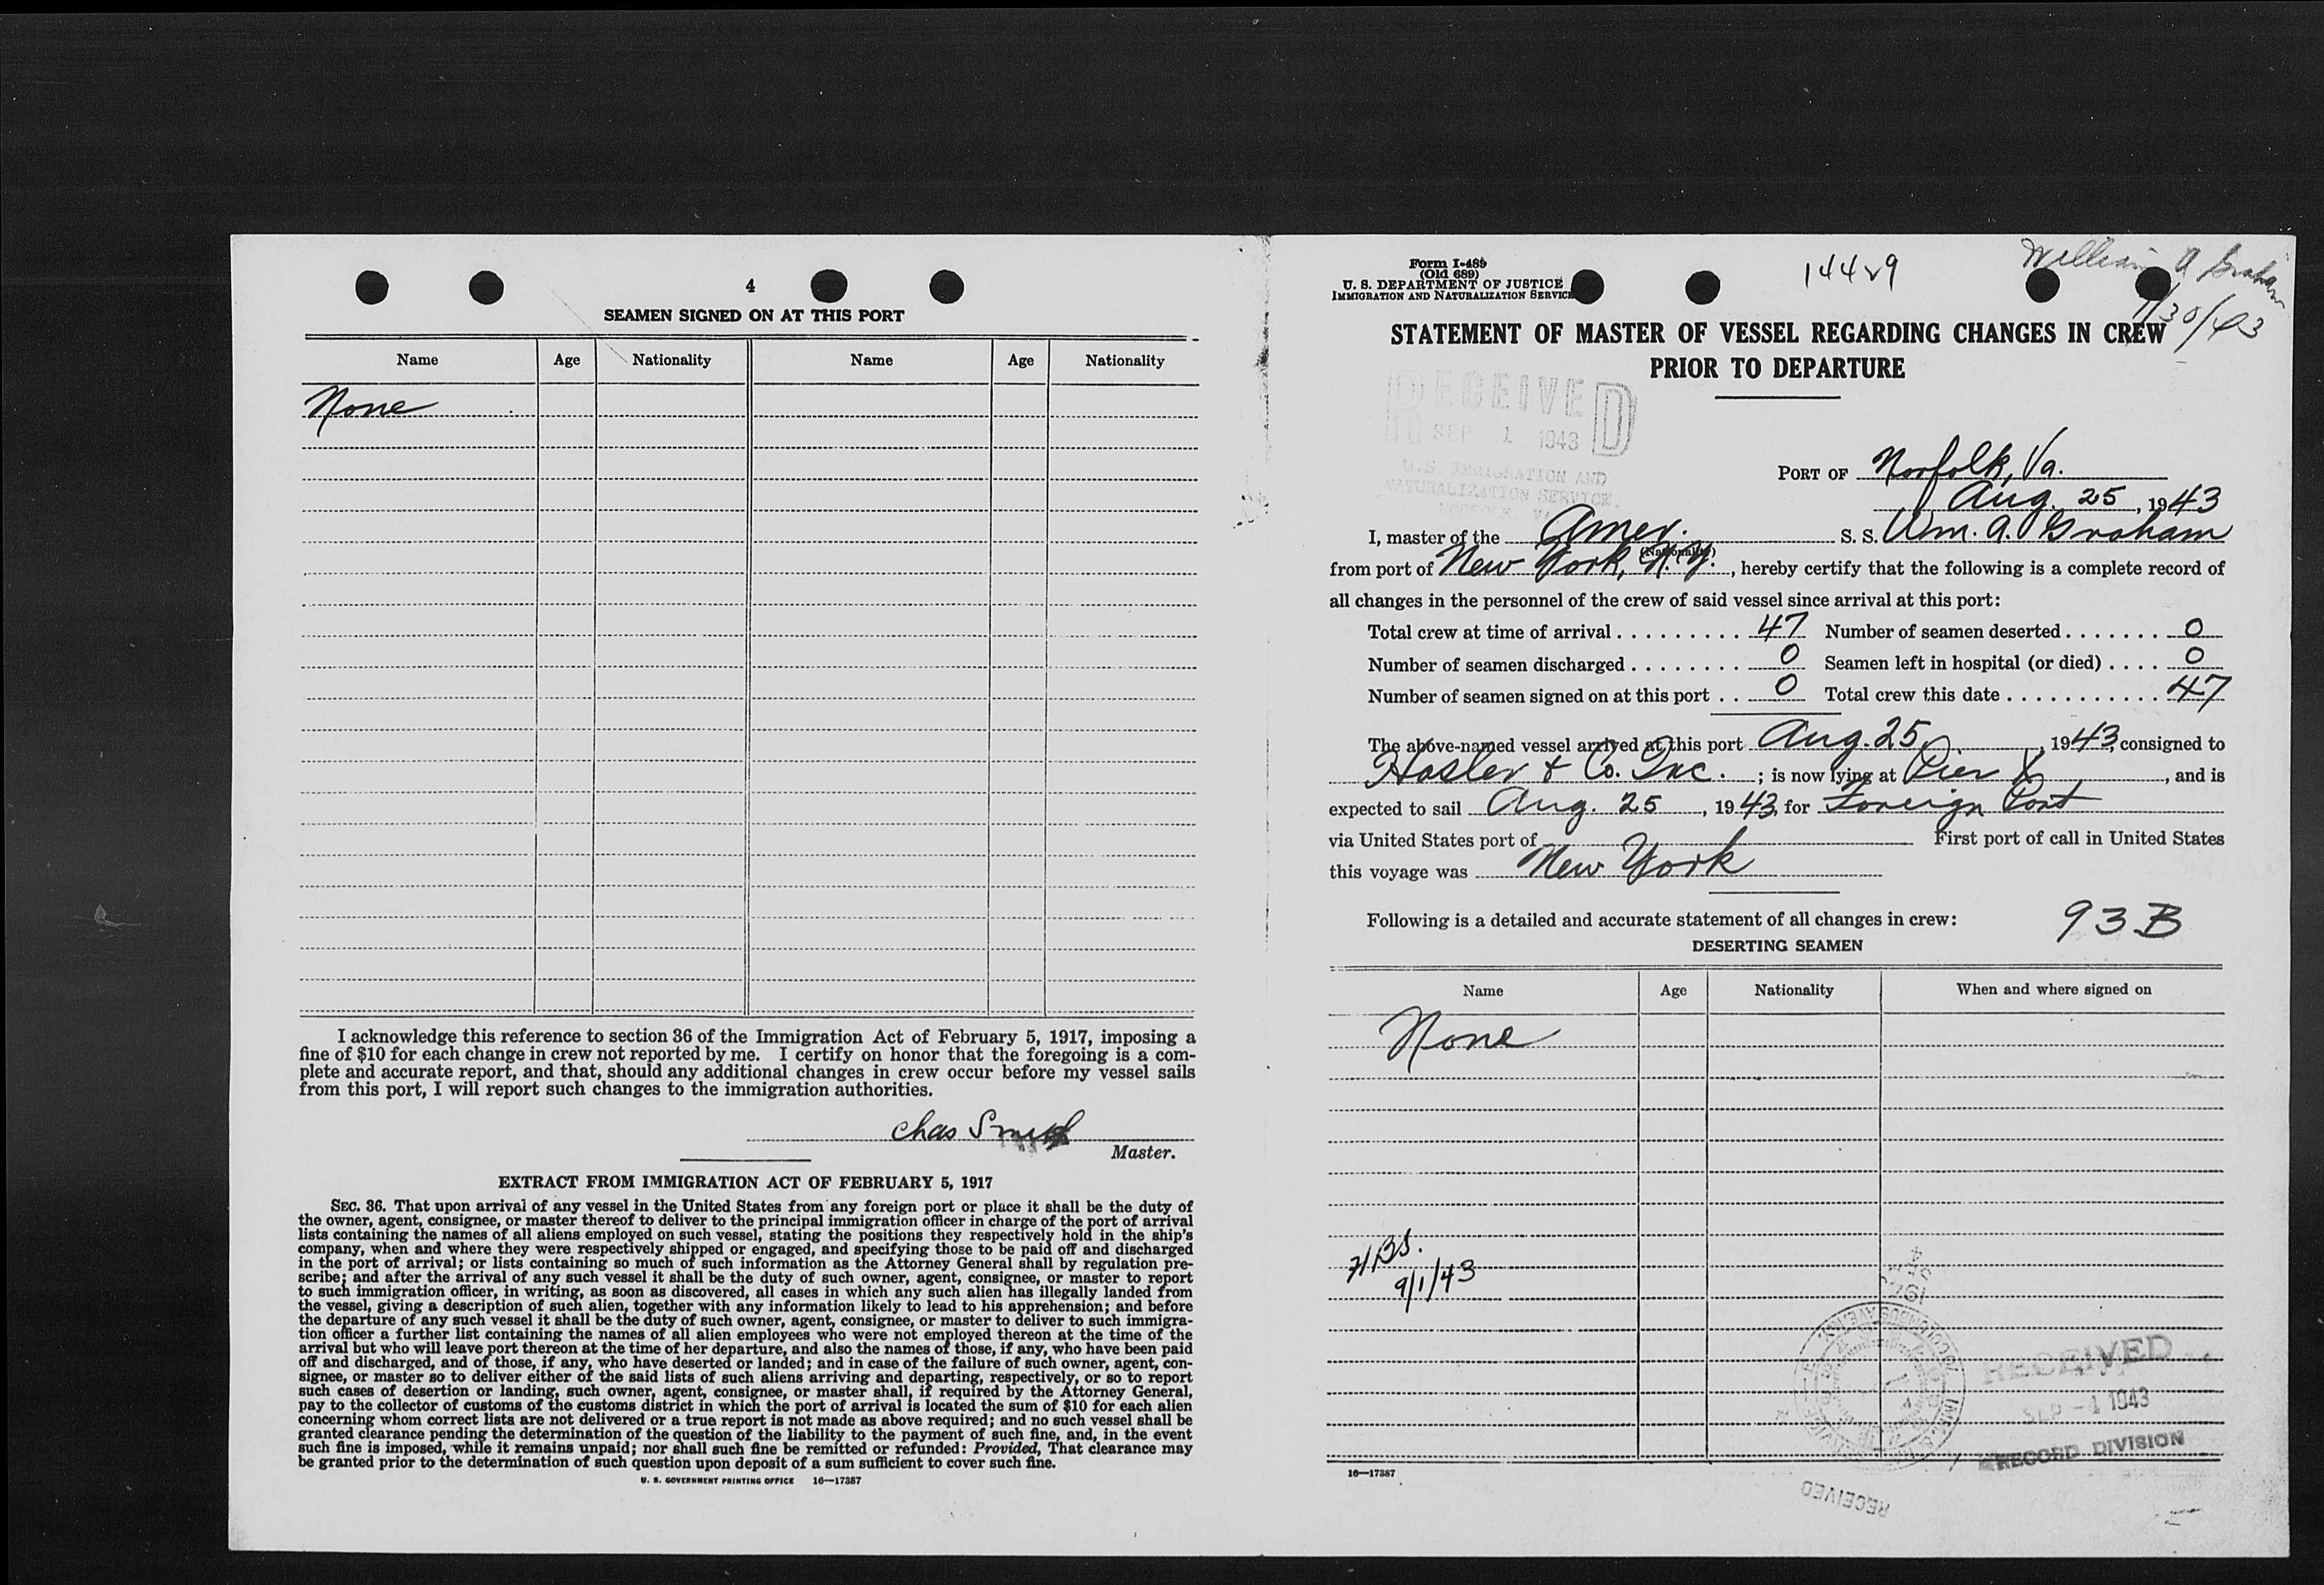 4
SEAMEN SIGNED ON AT THIS PORT
Name Age Nationality Name Age Nationality
None
I acknowledge this reference to section 36 of the Immigration Act of February 5, 1917, imposing a
fine of $10 for each change in crew not reported by me. I certify on honor that the foregoing is a com-
plete and accurate report, and that, should any additional changes in crew occur before my vessel sails
from this port, I will report such changes to the immigration authorities.
Chas Smith
Master.
EXTRACT FROM IMMIGRATION ACT OF FEBRUARY 5, 1917
SEC. 36. That upon arrival of any vessel in the United States from any foreign port or place it shall be the duty of
the owner, agent, consignee, or master thereof to deliver to the principal immigration officer in charge of the port of arrival
lists containing the names of all aliens employed on such vessel, stating the positions they respectively hold in the ship's
company, when and where they were respectively shipped or engaged, and specifying those to be paid off and discharged
in the port of arrival; or lists containing so much of such information as the Attorney General shall by regulation pre-
scribe; and after the arrival of any such vessel it shall be the duty of such owner, agent, consignee, or master to report
to such immigration officer, in writing, as soon as discovered, all cases in which any such alien has illegally landed from
the vessel, giving a description of such alien, together with any information likely to lead to his apprehension; and before
the departure of any such vessel it shall be the duty of such owner, agent, consignee, or master to deliver to such immigra-
tion officer a further list containing the names of all alien employees who were not employed thereon at the time of the
arrival but who will leave port thereon at the time of her departure, and also the names of those, if any, who have been paid
off and discharged, and of those, if any, who have deserted or landed; and in case of the failure of such owner, agent, con-
signee, or master so to deliver either of the said lists of such aliens arriving and departing, respectively, or so to report
such cases of desertion or landing, such owner, agent, consignee, or master shall, if required by the Attorney General,
pay to the collector of customs of the customs district in which the port of arrival is located the sum of $10 for each alien
concerning whom correct lists are not delivered or a true report is not made as above required; and no such vessel shall be
granted clearance pending the determination of the question of the liability to the payment of such fine, and, in the event
such fine is imposed, while it remains unpaid; nor shall such fine be remitted or refunded: Provided, That clearance may
be granted prior to the determination of such question upon deposit of a sum sufficient to cover such fine.
U. S. GOVERNMENT PRINTING OFFICE 16—17387
Form I-489
(Old 689)
U. S. DEPARTMENT OF JUSTICE
IMMIGRATION AND NATURALIZATION SERVICE
14429
William A Graham
/30/43
STATEMENT OF MASTER OF VESSEL REGARDING CHANGES IN CREW
PRIOR TO DEPARTURE
RECEIVED
SEP 1 1943
U.S. IMMIGRATION AND
NATURALIZATION SERVICE.
NORFOLK, VA.
PORT OF Norfolk, Va.
Aug. 25, 1943
I, master of the Amer. S. S. Wm. A. Graham
(Nationality)
from port of New York, N.Y., hereby certify that the following is a complete record of
all changes in the personnel of the crew of said vessel since arrival at this port:
Total crew at time of arrival . . . . . . . . . 47 Number of seamen deserted . . . . . . . 0
Number of seamen discharged . . . . . . . . 0 Seamen left in hospital (or died) . . . . 0
Number of seamen signed on at this port . . 0 Total crew this date . . . . . . . . . . . . 47
The above-named vessel arrived at this port Aug. 25, 1943, consigned to
Hasler & Co. Inc. ; is now lying at Pier X, and is
expected to sail Aug. 25, 1943, for Foreign Port
via United States port of First port of call in United States
this voyage was New York
Following is a detailed and accurate statement of all changes in crew:
93 B
DESERTING SEAMEN
Name Age Nationality When and where signed on
None
9/1/43
RECEIVED
SEP -1 1943
RECORD DIVISION
16—17387
RECEIVED